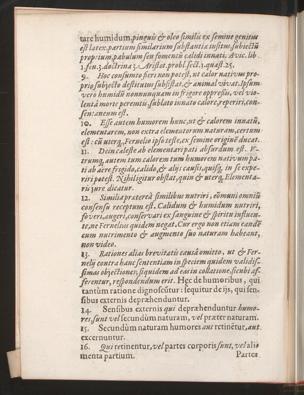 tare humidum, pinguis & oleo similis ex semine genitus
est latex, partium similarium substantiæ insitus, subiectū
proprium, pabulum seu fomentū calidi innati. Auic. lib.
1. fen. 3. doctrina 3. Aristot. probl. sect. 3. quæst. 25.
9. Hoc consumto fieri non potest, ut calor nativus pro-
prio subjecto destitutus subsistat, & animal vivat. Ipsum
vero humidū nonnunquam in frigore oppresso, vel vio-
lentâ morte peremtis, sublato innato calore, reperiri, con-
sentaneum est.
10. Esse autem humorem hunc, ut & calorem innatū,
elementarem, non extra elementorum naturam, certum
est: cū uterq;, Fernelio ipso teste, ex semine originē ducat.
11. Dein cælestē ab elementari pati absurdum est.
trumq, autem tum calorem tum humorem nativum pa-
ti ab aëre frigido, calido, & alijs causis, quisq, in se expe-
riri potest. Nihil igitur obstat, quin & uterq, Elementa-
ris jure dicatur.
12. Similia præterea similibus nutriri, omnium omniū
consensu receptum est. Calidum & humidum nutriri,
foveri, augeri, conservari ex sanguine & spiritu influen-
te, ne Fernelius quidem negat. Cur ergo non etiam eandē
cum nutrimento & augmento suo naturam habeant,
non video.
13. Rationes alias brevitatis causâ omitto, ut & Fer-
nelij contra hanc sententiam in speciem quidem validis-
simas objectiones, siquidem ad eas in collatione, sicubi af-
ferentur, respondendum erit. Hęc de humoribus, qui
tantùm ratione dignoscūtur: sequitur de ijs, qui sen-
sibus externis depræhenduntur.
14. Sensibus externis qui depræhenduntur humo-
res, sunt vel secundùm naturam, vel præter naturam.
15. Secundùm naturam humores aut retinētur, aut
excernuntur.
16. Qui retinentur, vel partes corporis sunt, vel ali
menta partium.
Partes